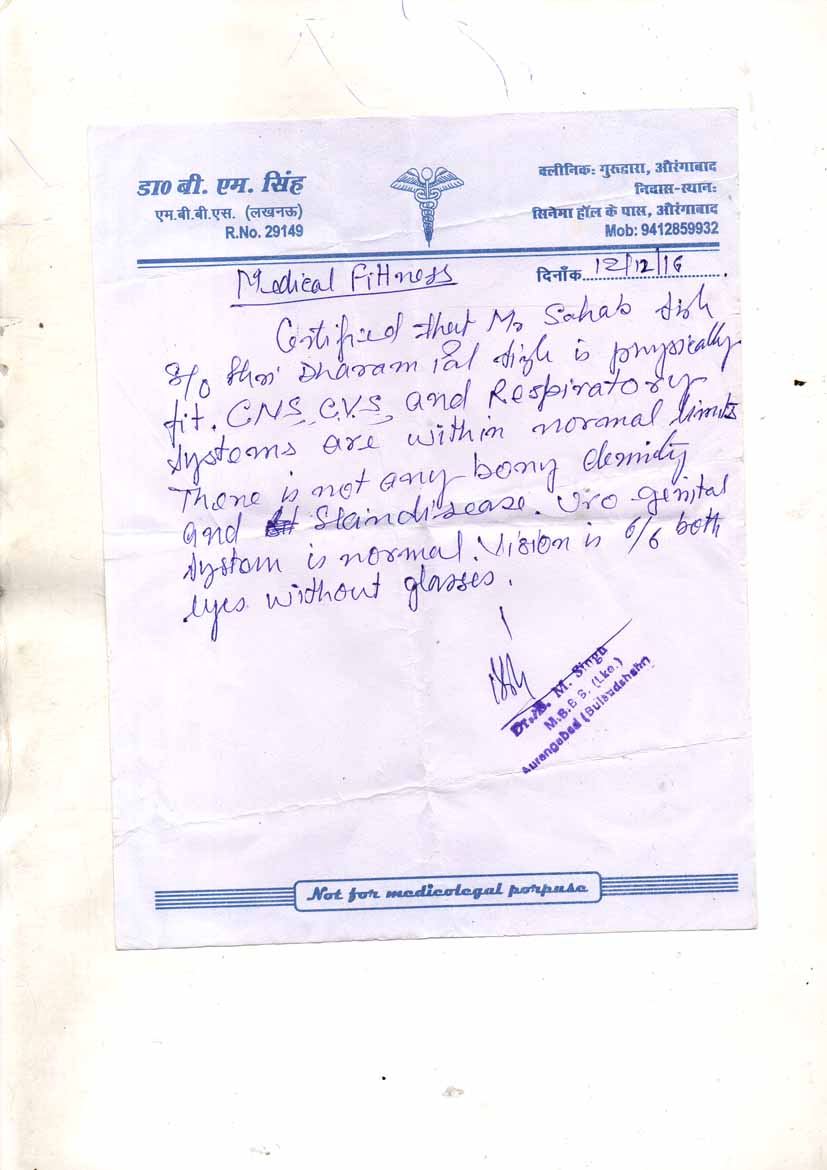 डा0 बी. एम. सिंह
एम.बी.बी.एस. (लखनऊ)
R.No. 29149
क्लीनिक: गुरुद्वारा, औरंगाबाद
निवास-स्थान:
सिनेमा हॉल के पास, औरंगाबाद
Mob: 9412859932
दिनाँक 12/12/16
Medical Fittness
Certified that Mr Sahab
S/o Shri Dharam Pal is physically
fit. C.N.S, C.V.S, and Respiratory
systems are within normal limits
There is not any bony
and Skin disease. Uro genital
system is normal. Vision is 6/6 both
eyes without glasses.
Dr. B. M. Singh
M.B.B.S. (Lko.)
Aurangabad (Bulandshahr)
Not for medicolegal porpuse